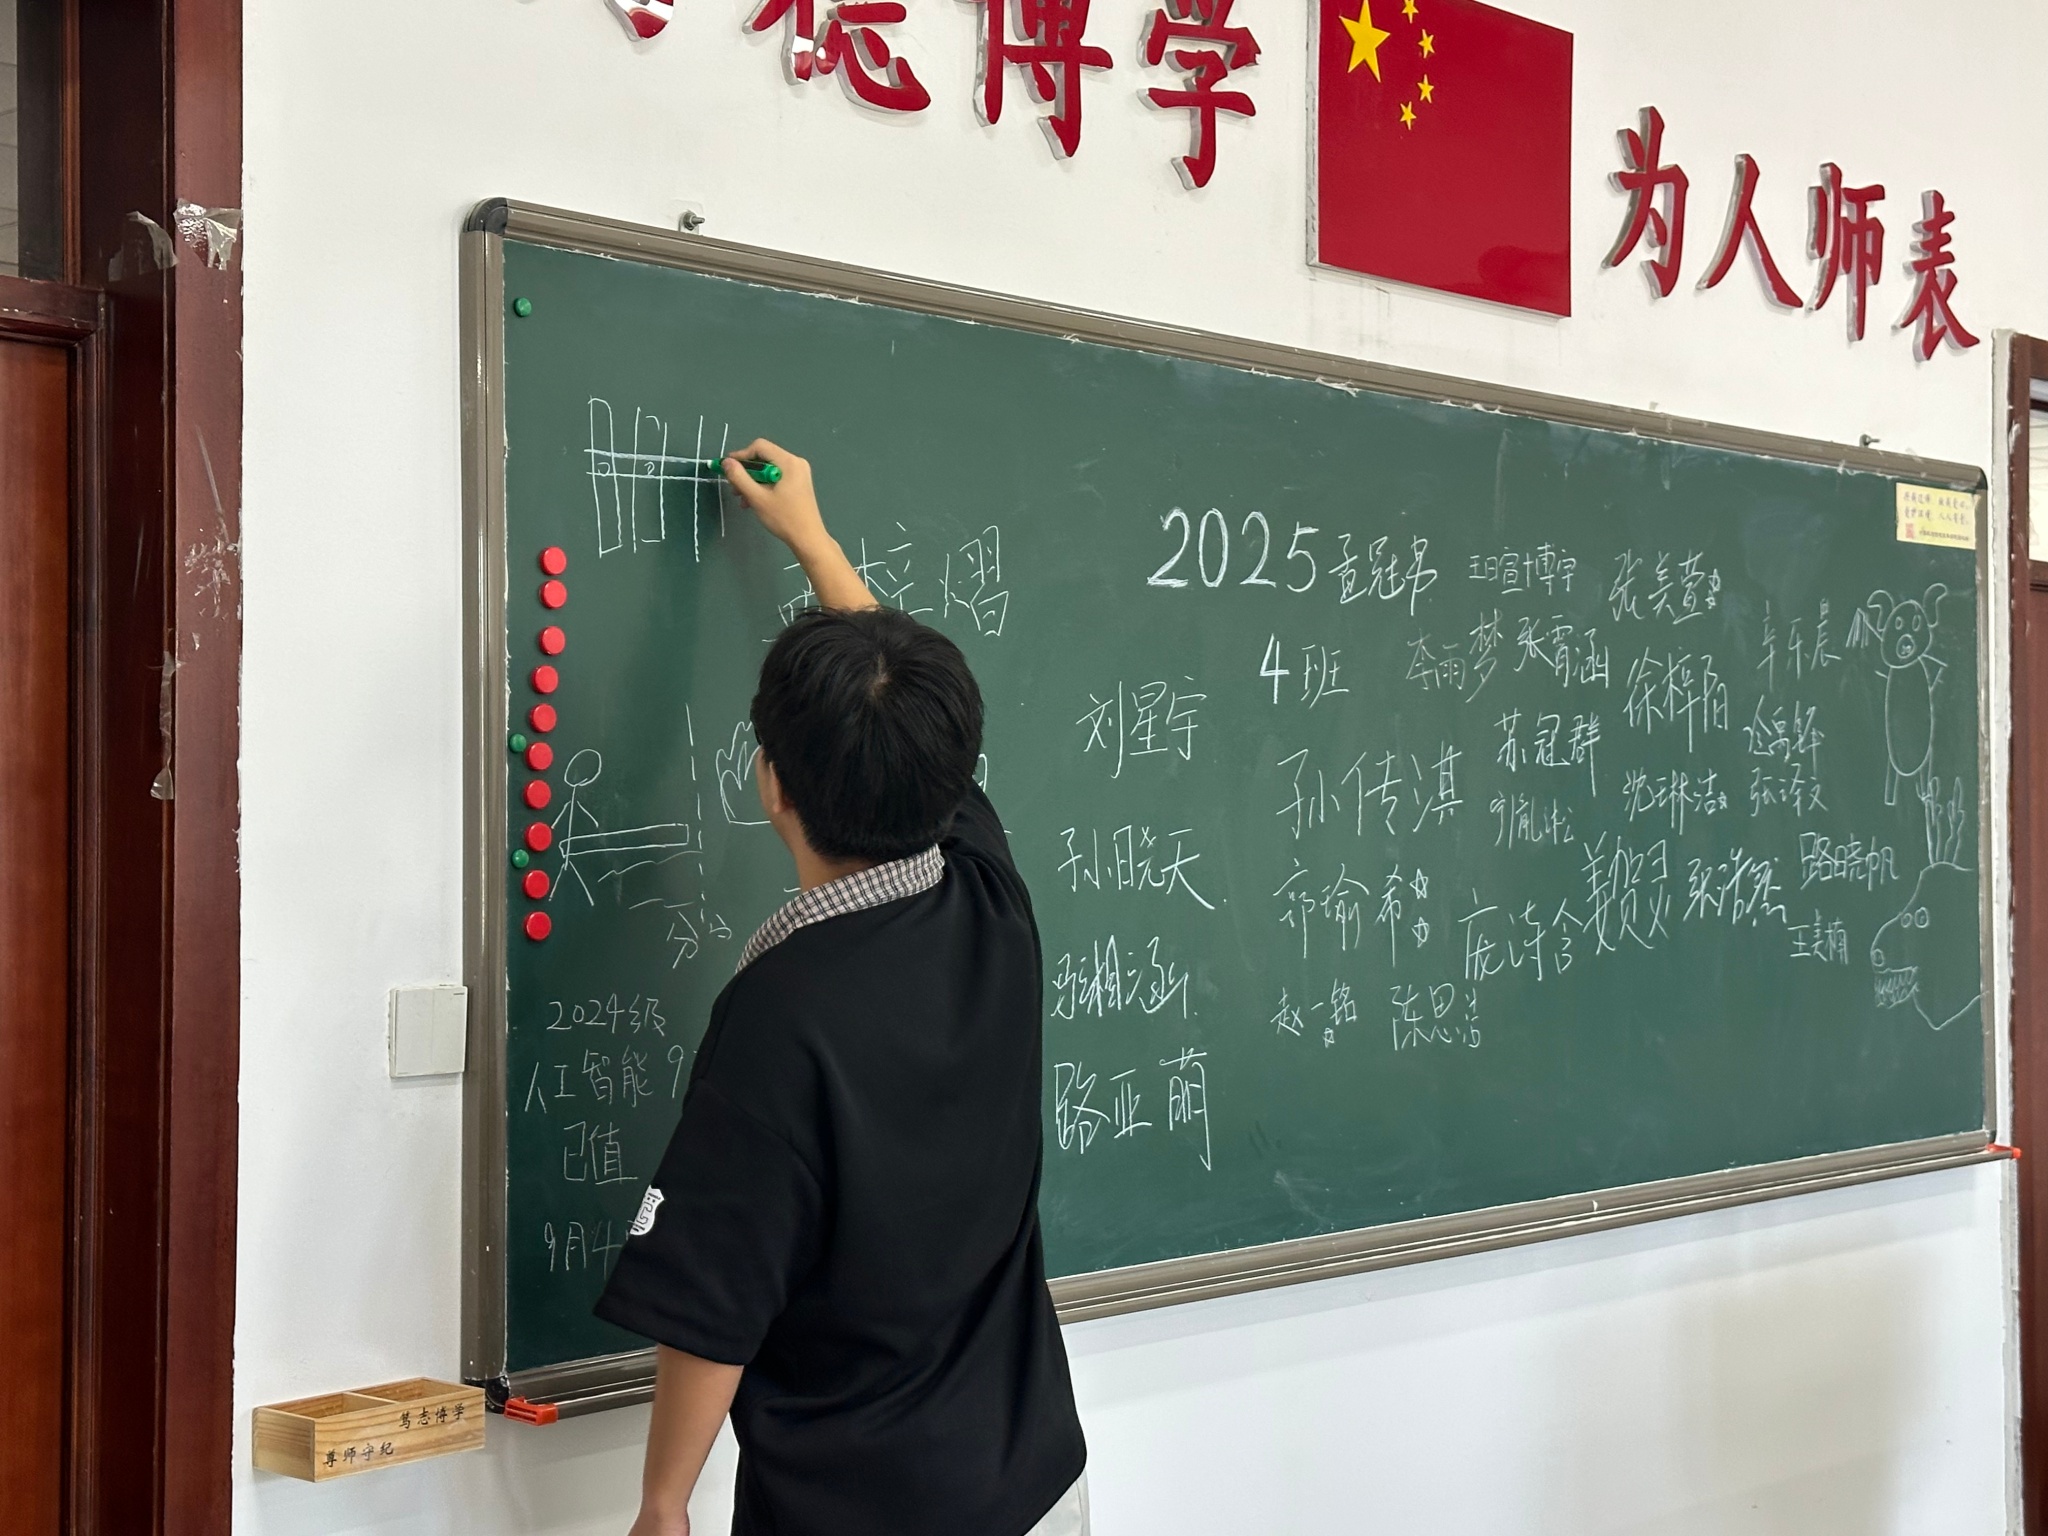 德博学
为人师表
2025
孟冠帛
王日宣
博宇
张美萱
4班
李雨梦
张霄涵
徐梓阳
辛乐晨
刘星宇
苏冠群
孙传淇
沈琳洁
张泽文
孙晓天
郭瑜希
庞诗含
姜贺灵
张浩然
路晓帆
王美楠
骆湘涵
赵一铭
陈思浩
路亚萌
分
2024级
人工智能 9
已值
9月4
笃志博学
尊师守纪